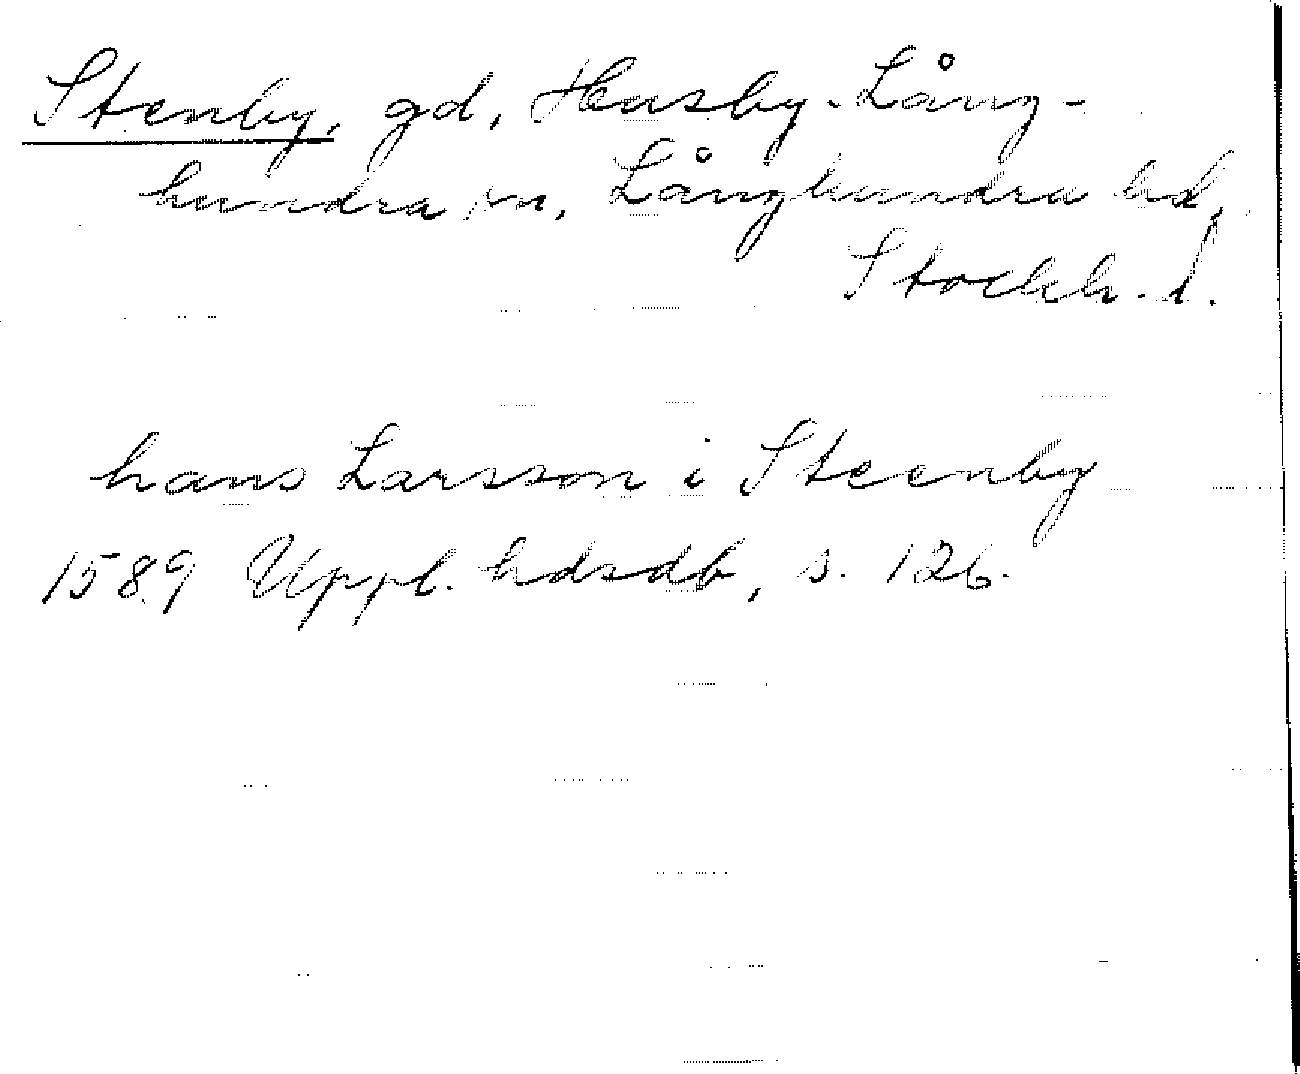 Stenby, gd, Husby-Lång-
hundra sn, Långhundra hd,
Stockh. l.
hans Larsson i Steenby
1589 Uppl. hdsdb, s. 126.